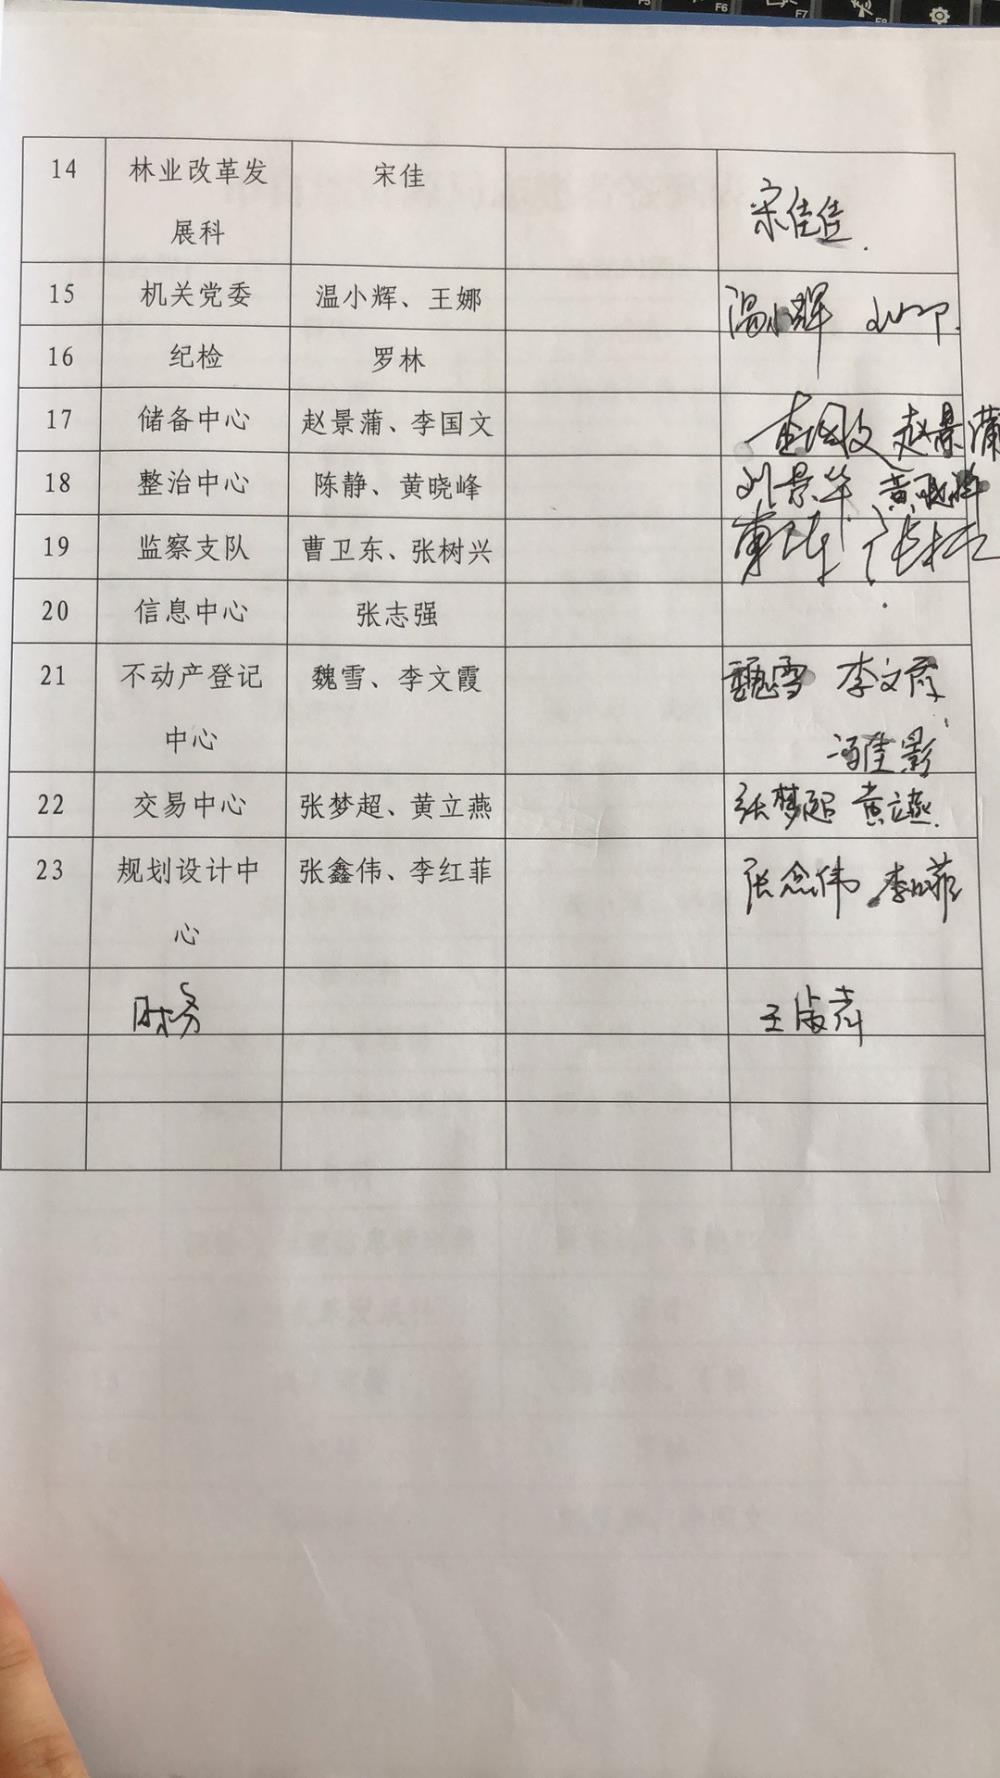 14 林业改革发 宋佳
展科 宋佳佳
15 机关党委 温小辉、王娜 温小辉
16 纪检 罗林
17 储备中心 赵景蒲、李国文 李国文 赵景蒲
18 整治中心 陈静、黄晓峰 刘景华 黄晓峰
19 监察支队 曹卫东、张树兴
20 信息中心 张志强
21 不动产登记 魏雪、李文霞 魏雪 李文霞
中心 冯佳影
22 交易中心 张梦超、黄立燕 张梦超 黄立燕
23 规划设计中 张鑫伟、李红菲 张鑫伟 李红菲
心
财务 王